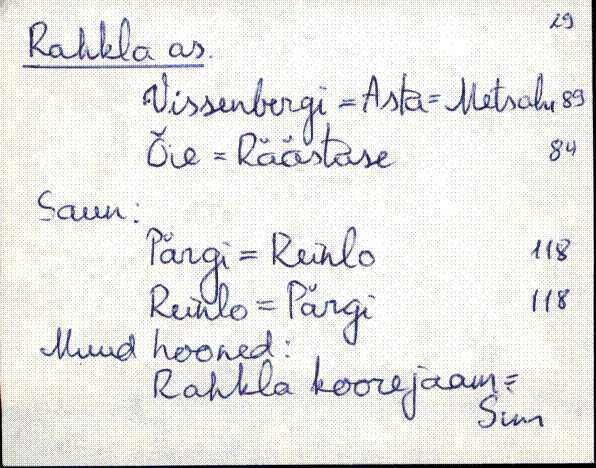 29
Rahkla as.
Vissenbergi = Asta = Metsalu 89
Õie = Räästase 84
Saun:
Pärgi = Reinlo 118
Reinlo = Pärgi 118
Muud hooned:
Rahkla koorejaam =
Sim